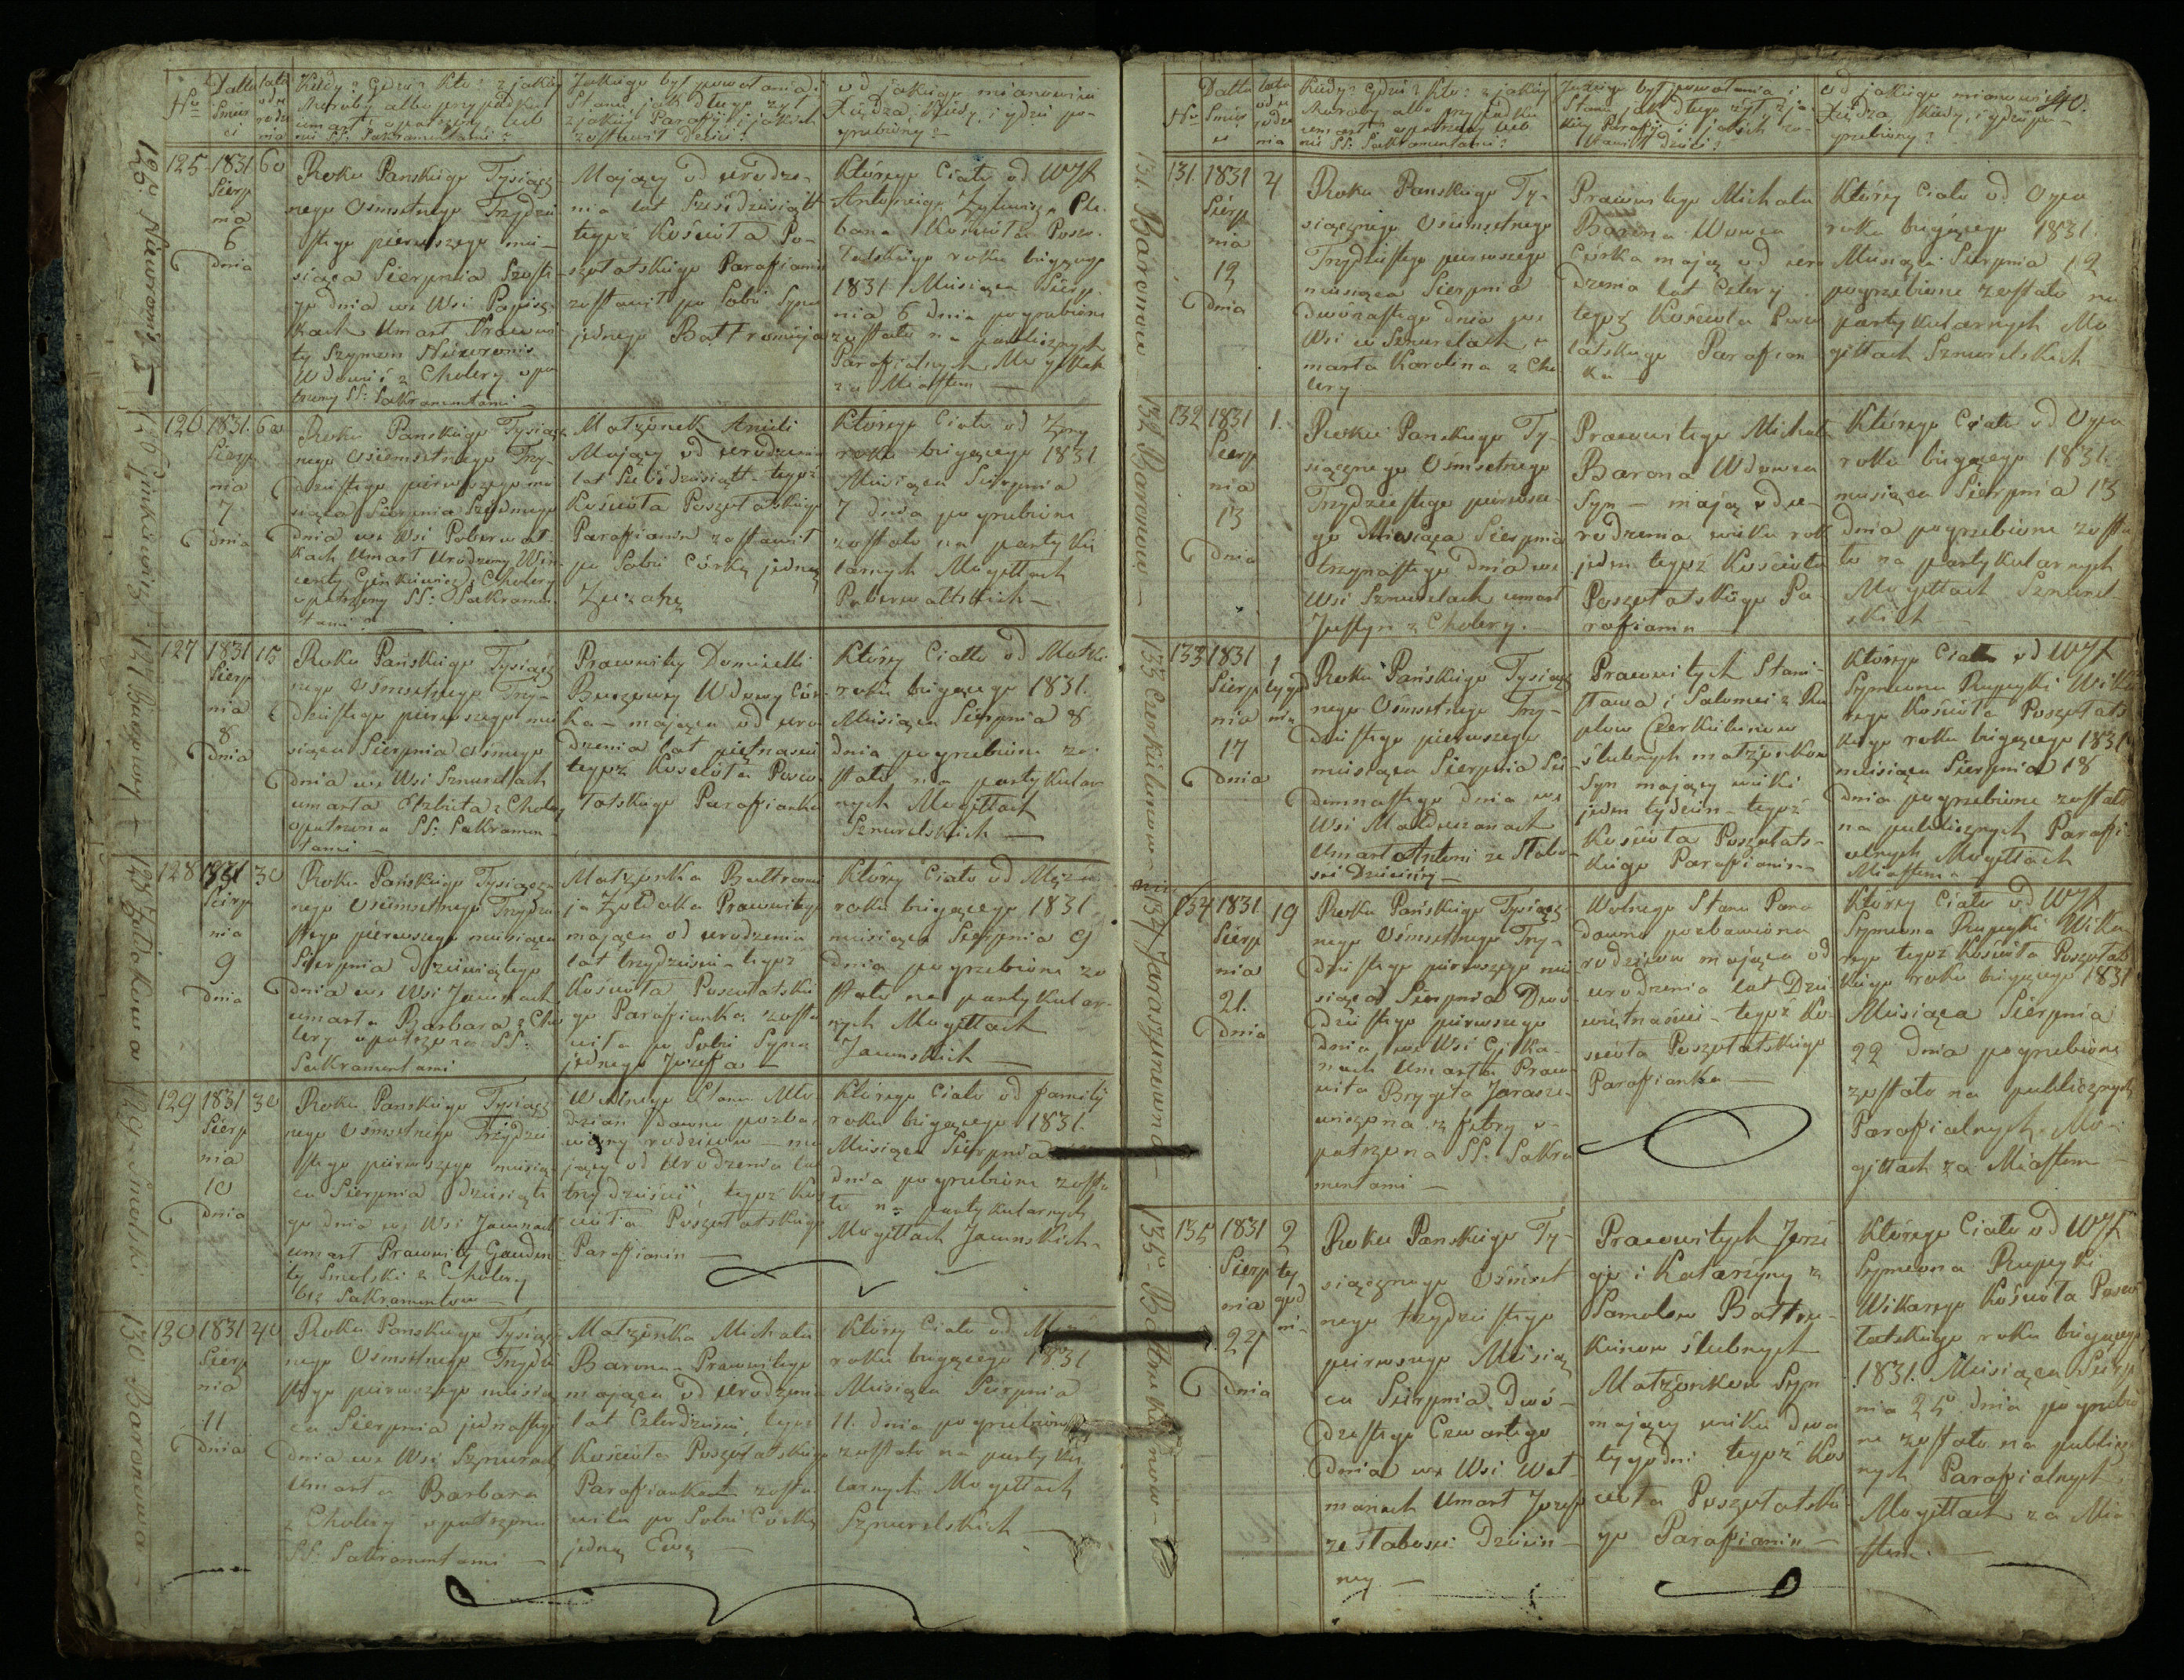 Nro
Datta Śmierci
lata od urodzenia
Kiedy? Gdzie? Kto? z jakiey
Choroby albo przypadku
umarł opatrzony lub
nie SS: Sakramentami?
Jakiego był powołania i
Stanu, jak długo żył,
z jakiey Parafii i jakich
zostawił dzieci?
od jakiego mianowicie
Xiędza, kiedy, i gdzie po-
grzebiony?
125 Nawronis
125
1831
Sierp
nia
6
dnia
60
Roku Panskiego Tysiącz
nego Osmsetnego Trzydzie
stego pierwszego mie-
siąca Sierpnia Szoste-
go dnia we Wsi Papisz-
kach Umarł Prawowi-
ty Szymon Nawronis
Wdowiec z Cholery opa
trzony SS: Sakramentami
Maiący od urodze-
nia lat Sześćdziesiątt
tegoż Kościoła Po-
szołatskiego Parafianin
zostawił po Sobie Syna
jednego Bałtromieja
Którego Ciało od WJX
Antoniego Żylewicza Ple-
bana Kościoła Poszo-
łatskiego roku bieżącego
1831 Miesiąca Sierp-
nia 6 dnia pogrzebione
zostało na publicznych
Parafialnych Mogiłłach
za Miastem —
126
1831.
Sierp
nia
7
dnia
60
Roku Panskiego Tysiącz
nego Osiemsetnego Trzy-
dziestego pierwszego mie
siąca Sierpnia Siodmego
dnia we Wsi Poberwał-
kach Umarł Urodzony Win-
centy z Cholery
opatrzony SS: Sakramen-
tami
Małżonek Anieli
Maiący od urodzenia
lat Sześćdziesiątt tegoż
Kościoła Poszołatskiego
Parafianin zostawił
po Sobie Córkę jedną
Zuzannę
Którego Ciało od Żony
roku bieżącego 1831.
Miesiąca Sierpnia
7 dnia pogrzebione
zostało na partyku
larnych Mogiłłach
Poberwałtskich —
127
1831
Sierp
nia
8
dnia
15
Roku Pańskiego Tysiącz
nego Osmsetnego Trzy-
dziestego pierwszego mie
siąca Sierpnia Osmego
dnia we Wsi Sznurelach
umarła Elżbieta z Cholery
opatrzona SS: Sakramen-
tami —
Prawowity Dominelli
Wdowy Cór-
ka — maiąca od uro
dzenia lat piętnaście
tegoż Kościoła Poszo-
łatskiego Parafianka
Który Ciało od Matki
roku bieżącego 1831.
Miesiąca Sierpnia 8
dnia pogrzebione zo-
stało na partykular
nych Mogiłłach
Sznurelskich —
128
1831
Sierp
nia
9
dnia
30
Roku Pańskiego Tysiączn
nego Osiemsetnego Trzydzie
stego pierwszego miesiąca
Sierpnia dziewiątego
dnia we Wsi Jawnach
umarła Barbara z Cho
lery opatrzona SS:
Sakramentami
Małżonka Bałtromie
ja Żołdaka Prawowitego
maiąca od urodzenia
lat trzydzieści — tegoż
Kościoła Poszołatskie
go Parafianka, zosta
wiła po Sobie Syna
jednego Jozefa —
Który Ciało od Męża
roku bieżącego 1831
miesiąca Sierpnia 9
dnia pogrzebione zo
stało na partykular-
nych Mogiłłach
Jawnskich —
129
1831
Sierp
nia
10
dnia
30
Roku Panskiego Tysiącz
nego Osmsetnego Trzydzie
stego pierwszego miesią
ca Sierpnia dziesiąte
go dnia we Wsi Jawnach
umarł Prawowity Gauden
ty Smolski z Cholery
bez Sakramentow —
Wolnego Stanu Mło-
dzian dawno pozba-
wiony rodzicow — ma
jący od Urodzenia lat
trzydzieści tegoż Koś
cioła Poszołatskiego
Parafianin —
Którego Ciało od Familij
roku bieżącego 1831.
Miesiąca Sierpnia
dnia pogrzebione zosta
ło na partykularnych
Mogiłłach Jawnskich —
130 Baronowa
130
1831
Sierp
nia
11
dnia
40
Roku Panskiego Tysiącz
nego Osmsetnego Trzydzie
stego pierwszego miesią
ca Sierpnia jednastego
dnia we Wsi Sznurel
umarła Barbara
z Cholery opatrzona
SS: Sakramentami —
Małżonka Michała
Barona — Prawowitego
maiąca od Urodzenia
lat Czterdzieści, tegoż
Kościoła Poszołatskiego
Parafianka zosta
wiła po Sobie Córkę
jedną Ewę —
Który Ciało od Męża
roku bieżącego 1831
Miesiąca Sierpnia
11. dnia pogrzebione
zostało na partyku
larnych Mogiłłach
Sznurelskich —
40.
Nro
Datta Śmierci
lata od urodzenia
Kiedy? Gdzie? Kto? z jakiey
Choroby albo przypadku
umarł opatrzony lub
nie SS: Sakramentami?
Jakiego był powołania i
Stanu jak długo żył, z ja-
kiey Parafij i jakich zo-
stawił dzieci?
od jakiego mianowicie
Xiędza, kiedy, i gdzie po-
grzebiony?
131 Baronowa
131.
1831
Sierp
nia
12
dnia
4
Roku Panskiego Ty-
siącznego Osiemsetnego
Trzydziestego pierwszego
miesiąca Sierpnia
dwónastego dnia we
Wsi w Sznurelach u
marła Karolina z Cho
lery
Prawowitego Michała
Barona Wdowca
Córka mając od uro
dzenia lat Cztery
tegoż Kościoła Poszo
łatskiego Parafian
ka —
Który Ciało od Oyca
roku bieżącego 1831.
Miesiąca Sierpnia 12
pogrzebione zostało na
partykularnych Mo
giłłach Sznurelskich
132
1831
Sierp
nia
13
dnia
1.
Roku Panskiego Ty-
siącznego Osmsetnego
Trzydziestego pierwsze-
go Miesiąca Sierpnia
trzynastego dnia we
Wsi Sznurelach umarł
Justyn z Cholery.
Prawowitego Michała
Barona Wdowca
Syn — mając od u-
rodzenia wieku rok
jeden tegoż Kościoła
Poszołatskiego Pa-
rafianin
Którego Ciało od Oyca
roku bieżącego 1831.
miesiąca Sierpnia 13
dnia pogrzebione zosta
ło na partykularnych
Mogiłłach Sznurel-
skich —
133
1831
Sierp
nia
17
dnia
1
tygod
nia
Roku Pańskiego Tysiącz
nego Osmsetnego Trzy-
dziestego pierwszego
miesiąca Sierpnia Sie-
demnastego dnia we
Wsi
Umarł Antoni ze Słabo-
ści Dziecinney —
Prawowitych Stani-
sława i Salomei z
ślubnych małżonkow
Syn maiący wieku
jeden tydzień — tegoż
Kościoła Poszołats-
kiego Parafianin —
Którego Ciało od WJX
Symeona Rupeyki Wika
rego Kościoła Poszołats
kiego roku bieżącego 1831
miesiąca Sierpnia 18
dnia pogrzebione zostało
na publicznych Parafi-
alnych Mogiłłach
Miastem —
134
1831.
Sierp
nia
21.
dnia
19
Roku Pańskiego Tysiącz-
nego Osmsetnego Trzy-
dziestego pierwszego mie
siąca Sierpnia Dwó-
dziestego pierwszego
dnia we Wsi
Umarła Prawo-
wita Brygita Jarasze-
wiczowna z febry o-
patrzona SS: Sakra
mentami —
Wolnego Stanu Pana
dawno pozbawiona
rodzicow maiąca od
urodzenia lat Dzie
więtnaście — tegoż Ko-
ścioła Poszołatskiego
Parafianka —
Który Ciało od WJX
Symeona Rupeyki Wika
rego tegoż Kościoła Poszołats
kiego roku bieżącego 1831
Miesiąca Sierpnia
22 dnia pogrzebione
zostało na publicznych
Parafialnych Mo-
giłłach za Miastem —
135
1831
Sierp
nia
24
dnia
2
tygod
ni
Roku Panskiego Ty-
siącznego Osmset
nego trzydziestego
pierwszego Miesią
ca Sierpnia Dwó-
dziestego Czwartego
dnia we Wsi Wot-
manach Umarł Jozef
ze Słabości Dziecin-
ney —
Prawowitych Jerze
go i Katarzyny z
ślubnych
Małżonkow Syn
maiący wieku dwa
tygodni tegoż Koś
cioła Poszołatskie
go Parafianin —
Którego Ciało od WJX
Symeona Rupeyki
Wikarego Kościoła Poszo
łatskiego roku bieżącego
1831. Miesiąca Sierp
nia 25 dnia pogrzebio
ne zostało na publicz
nych Parafialnych
Mogiłłach za Mia-
stem. —